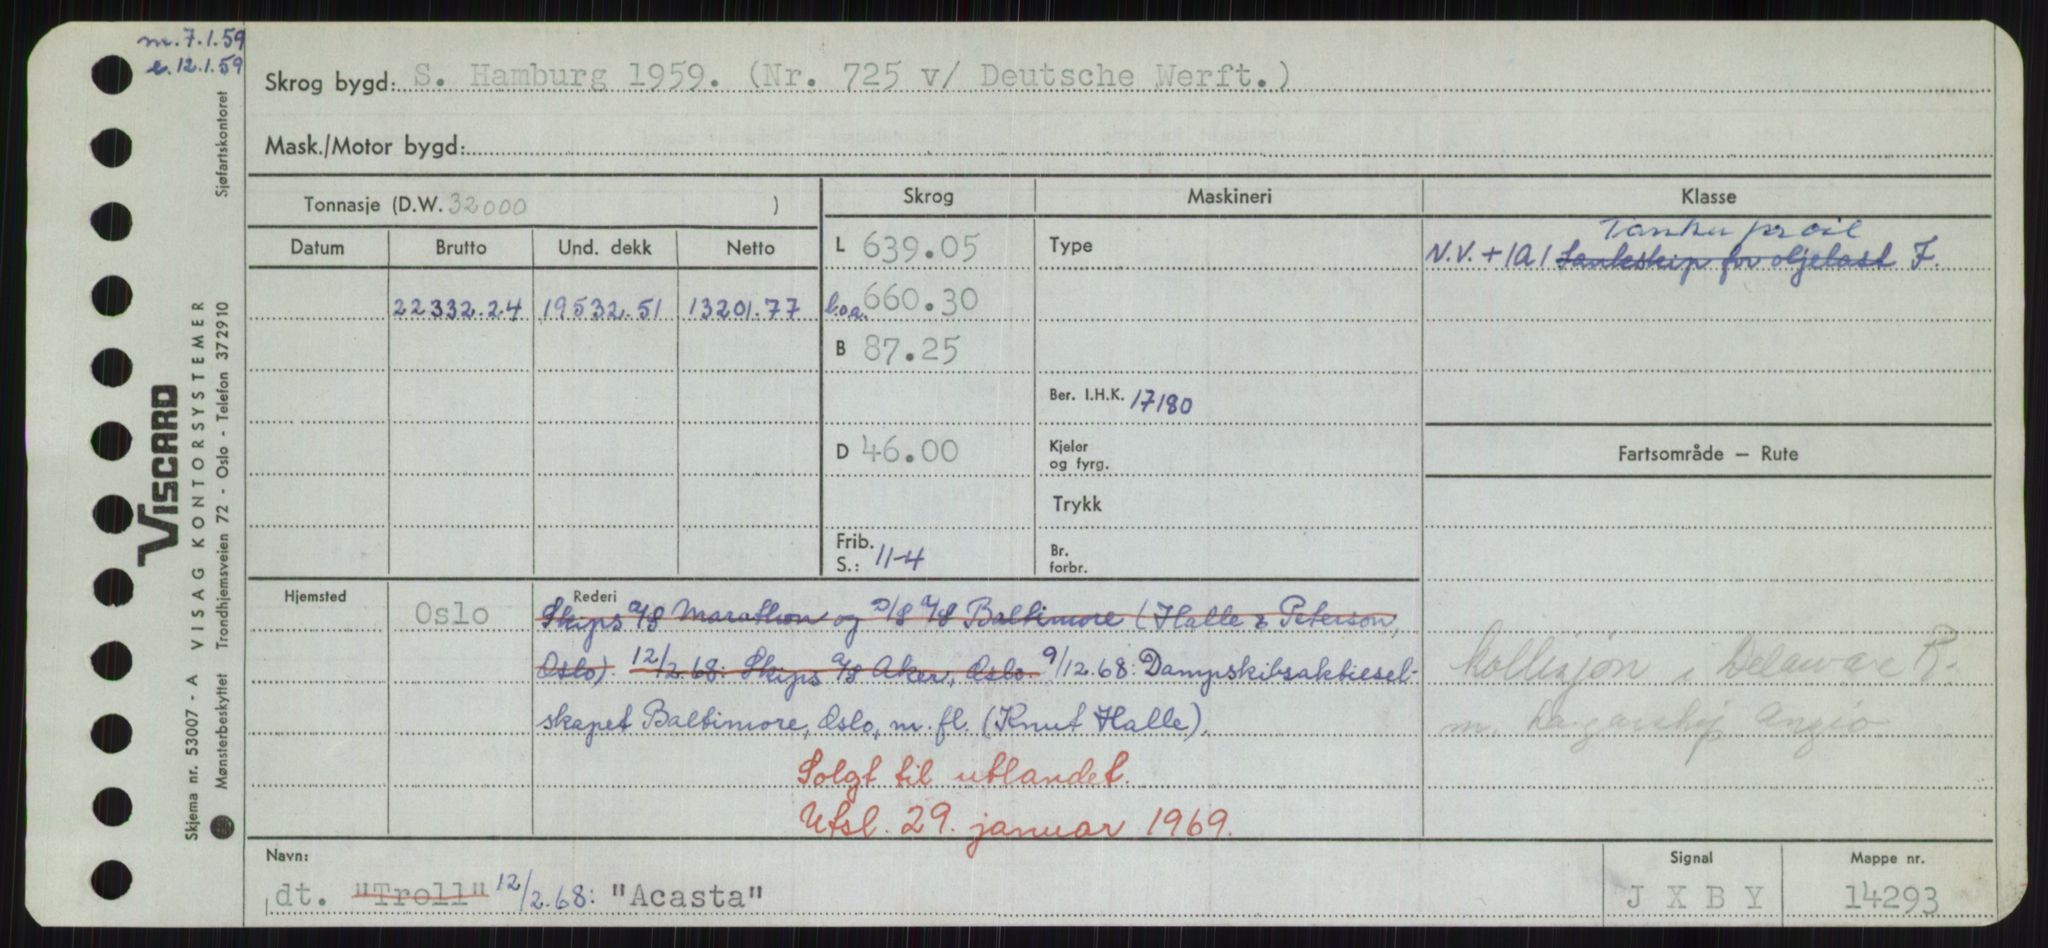 m. 7.1.59
e. 12.1.59
Skrog bygd: S. Hamburg 1959. (Nr. 725 v/ Deutsche Werft.)
Mask./Motor bygd:
Tonnasje (D.W. 32000 )
Skrog
Maskineri
Klasse
Datum
Brutto
Und. dekk
Netto
L 639.05
Type
Tanker for oil
N.V. + 1A1 Tankskip for oljelast F.
22332.24
19532.51
13201.77
l.o.a. 660.30
B 87.25
Ber. I.H.K. 17180
D 46.00
Kjeler
og fyrg.
Fartsområde — Rute
Trykk
Frib.
S.: 11-4
Br.
forbr.
Hjemsted
Oslo
Rederi
Skips A/S Marathon og D/S A/S Baltimore (Halle & Peterson,
Oslo). 12/2.68: Skips A/S Aker, Oslo. 9/12.68: Dampskibsaktiesel-
skapet Baltimore, Oslo, m. fl. (Knut Halle).
Solgt til utlandet.
Utsl. 29. januar 1969.
kollisjon i Delaware R.
m. Angio
Navn:
dt. "Troll" 12/2.68: "Acasta"
Signal
J X B Y
Mappe nr.
14293
VISCARD
Skjema nr. 53007 - A VISAG KONTORSYSTEMER
Mønsterbeskyttet Trondhjemsveien 72 - Oslo - Telefon 372910 Sjøfartskontoret